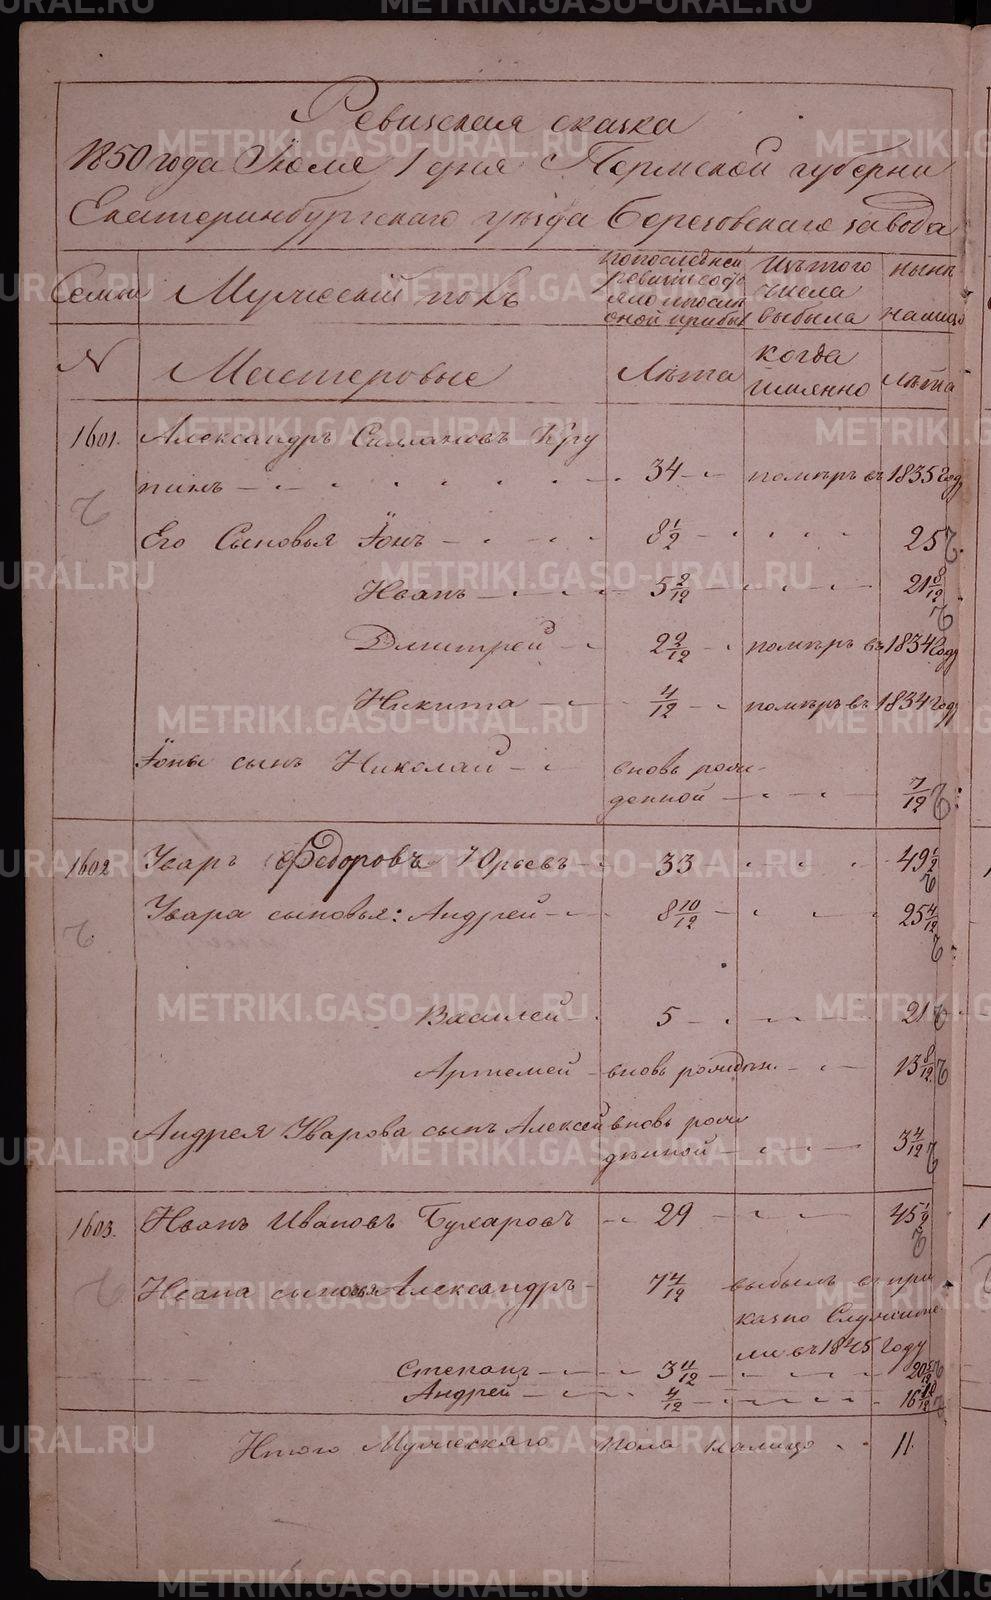 Ревизская сказка
1850 года Іюля 1 дня Пермской губерни
Екатеринбургскаго уѣзда Березовскаго завода
Семьи Мужеский полъ
по последней ревизіи состояло и после оной прибы
Изъ того числа выбыла
нынѣ налицо
N Мастеровые Лѣта когда имянно лѣта
1601. Александръ Симановъ Кру
пинъ 34 помѣръ въ 1835 году
Его Сыновья Іонъ 8 1/2 25
Иванъ 5 2/12 21 8/12
Дмитрей 2 2/12 помѣръ въ 1834 году
Никита 4/12 помѣръ въ 1834 году
Іоны сынъ Николай вновь рож-
денной 7/12
1602 Уваръ Федоровъ Юрьевъ 33 49 1/2
Увара сыновья: Андрей 8 10/12 25 4/12
Василей 5 21
Артемей вновь рожден. 13 8/12
Андрея Уварова сынъ Алексей вновь рож
денной 3 4/12
1603. Иванъ Ивановъ Бухаровъ 29 45 1/2
Ивана сыновья Александръ 7 4/12 выбылъ въ при
казно Служите
ли въ 1845 году
Степанъ 3 11/12 20 5/12
Андрей 4/12 16 10/12
Итого Мужескаго пола налицо 11.
METRIKI.GASO-URAL.RU